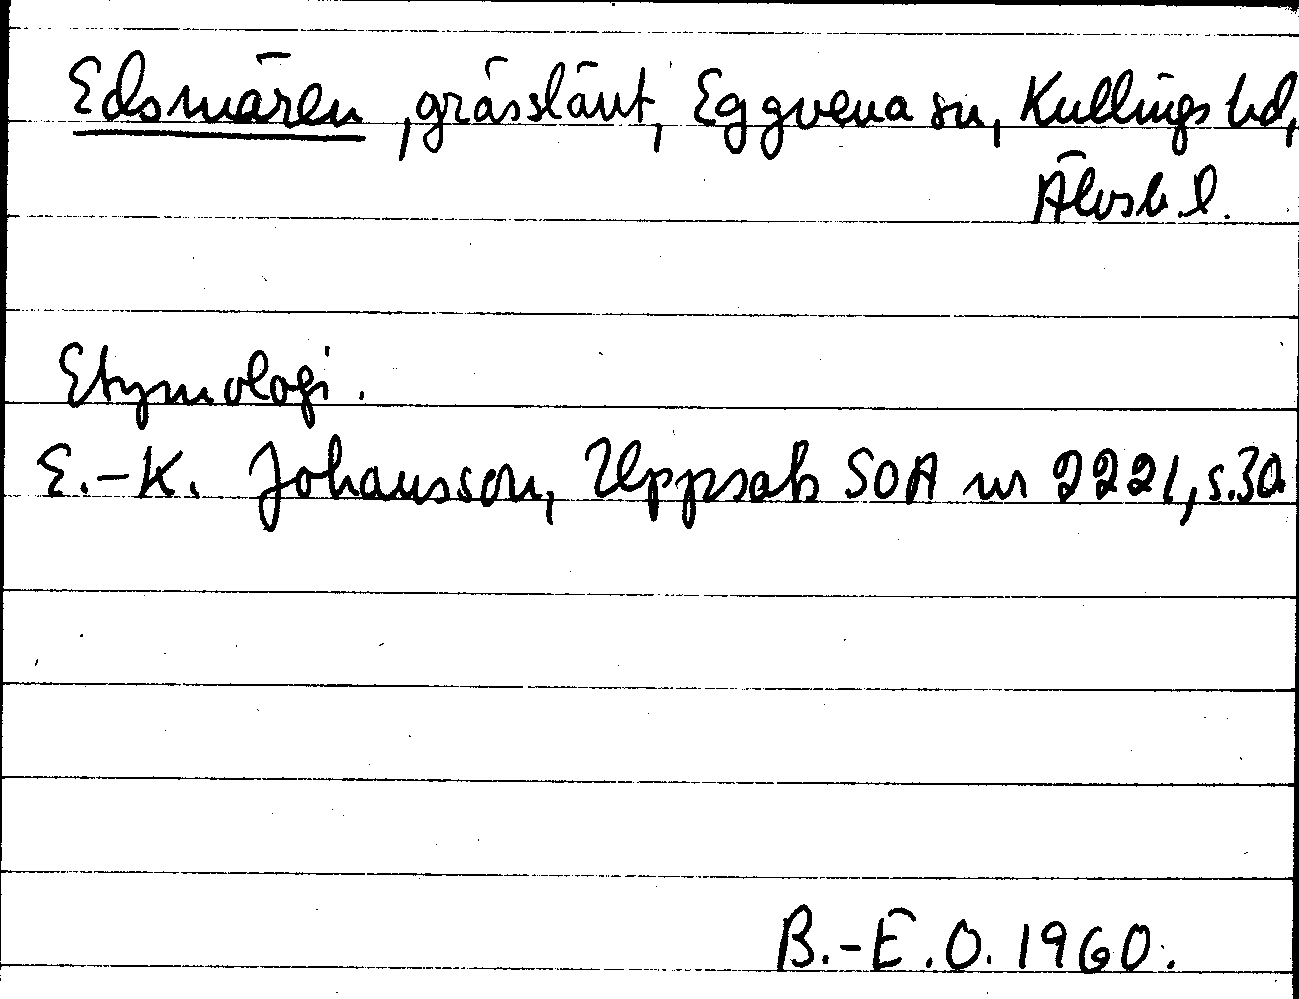 Edsmären, grässlänt, Eggvena sn, Kullings hd,
Älvsb. l.
Etymologi.
E.-K. Johansson, Uppsats SOA nr 2221, s.30
B.-E.O. 1960.